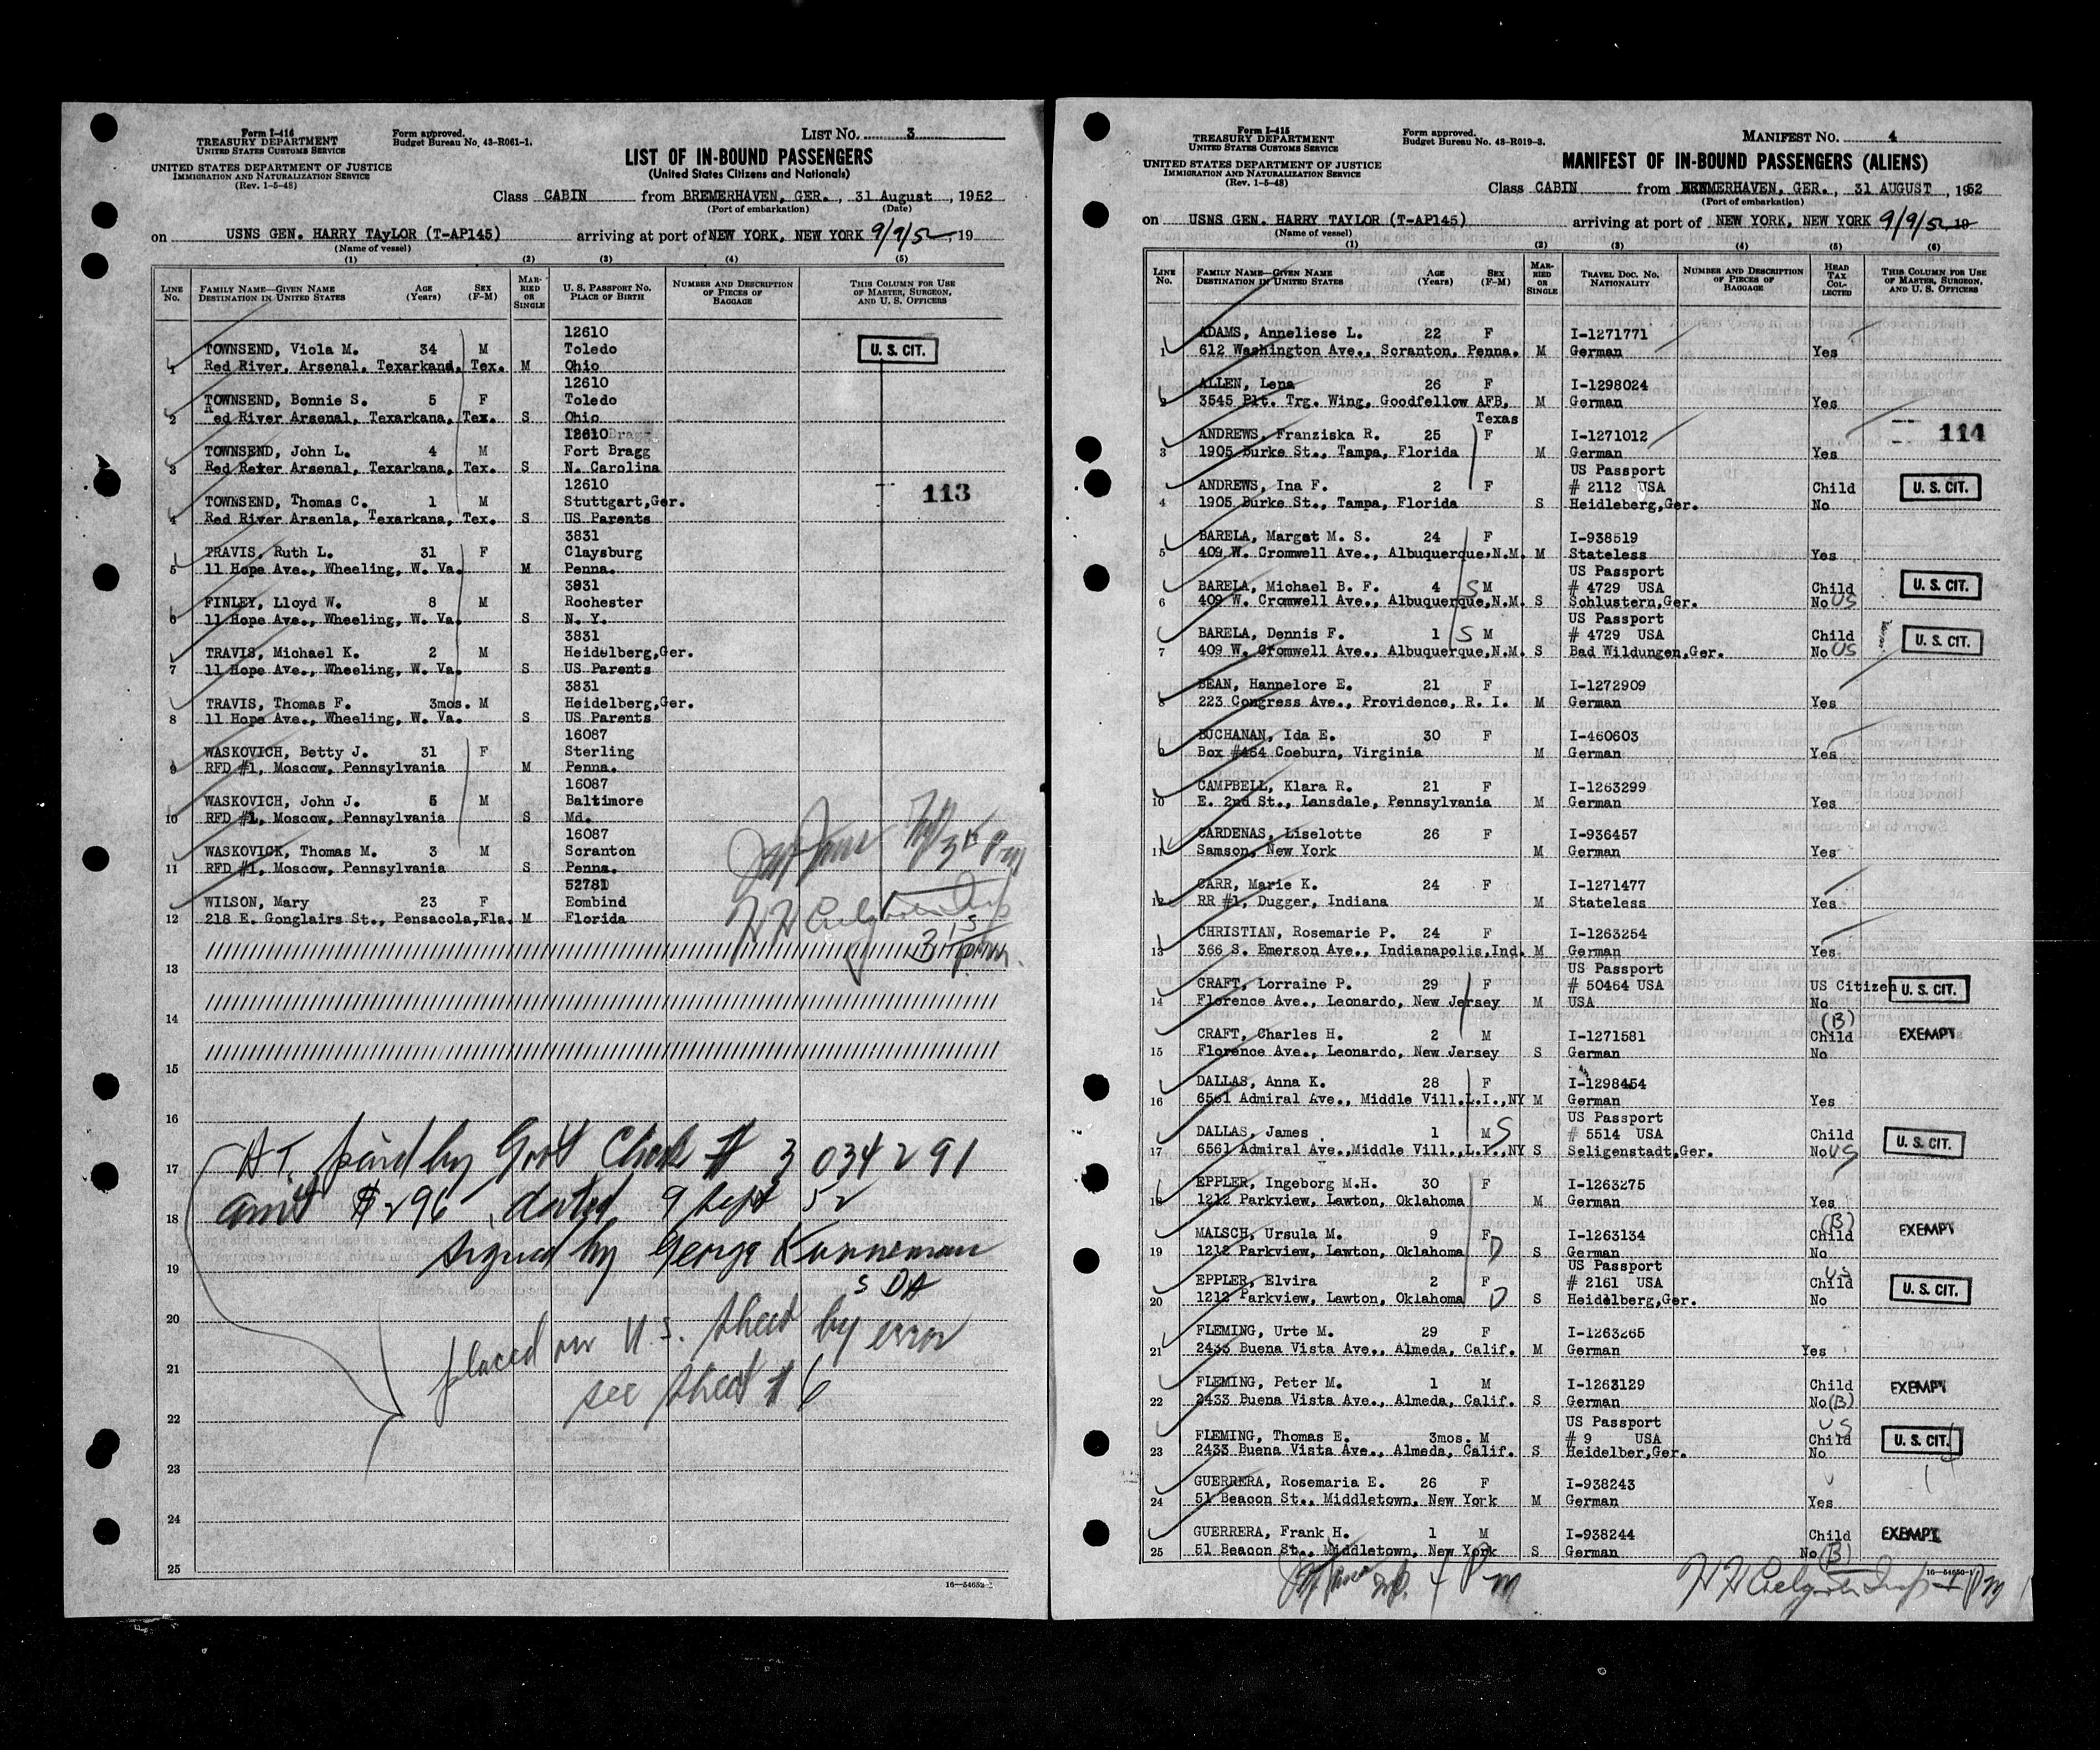 Form I-416
TREASURY DEPARTMENT
UNITED STATES CUSTOMS SERVICE
UNITED STATES DEPARTMENT OF JUSTICE
IMMIGRATION AND NATURALIZATION SERVICE
(Rev. 1-5-48)
Form approved.
Budget Bureau No. 43-R061-1.
LIST NO. 3
LIST OF IN-BOUND PASSENGERS
(United States Citizens and Nationals)
Class CABIN from BREMERHAVEN, GER., 31 August, 1952
(Port of embarkation) (Date)
on USNS GEN. HARRY TAyLOR (T-AP145) arriving at port of NEW YORK, NEW YORK 9/9/52, 19
(Name of vessel)
(1) (2) (3) (4) (5)
LINE No. FAMILY NAME—GIVEN NAME DESTINATION IN UNITED STATES AGE (Years) SEX (F-M) MARRIED OR SINGLE U. S. PASSPORT NO. PLACE OF BIRTH NUMBER AND DESCRIPTION OF PIECES OF BAGGAGE THIS COLUMN FOR USE OF MASTER, SURGEON, AND U. S. OFFICERS
12610
TOWNSEND, Viola M. 34 M Toledo U. S. CIT.
1 Red River, Arsenal, Texarkana, Tex. M Ohio
12610
TOWNSEND, Bonnie S. 5 F Toledo
2 Red River Arsenal, Texarkana, Tex. S Ohio
12610
TOWNSEND, John L. 4 M Fort Bragg
3 Red Rever Arsenal, Texarkana, Tex. S N. Carolina
12610
TOWNSEND, Thomas C. 1 M Stuttgart,Ger. 113
4 Red River Arsenla, Texarkana, Tex. S US Parents
3831
TRAVIS, Ruth L. 31 F Claysburg
5 11 Hope Ave., Wheeling, W. Va. M Penna.
3831
FINLEY, Lloyd W. 8 M Rochester
6 11 Hope Ave., Wheeling, W. Va. S N. Y.
3831
TRAVIS, Michael K. 2 M Heidelberg,Ger.
7 11 Hope Ave., Wheeling, W. Va. S US Parents
3831
TRAVIS, Thomas F. 3mos. M Heidelberg,Ger.
8 11 Hope Ave., Wheeling, W. Va. S US Parents
16087
WASKOVICH, Betty J. 31 F Sterling
9 RFD #1, Moscow, Pennsylvania M Penna.
16087
WASKOVICH, John J. 5 M Baltimore
10 RFD #1, Moscow, Pennsylvania S Md.
16087
WASKOVICK, Thomas M. 3 M Scranton
11 RFD #1, Moscow, Pennsylvania S Penna.
52781
WILSON, Mary 23 F Eombind
12 218 E. Gonglairs St., Pensacola,Fla. M Florida
13
14
15
16
17 H.T. paid by Govt Check # 3 034291
18 amt $296 dated 9 Sept 52
19 signed by George Kunneman
S DA
20 placed on U.S. sheet by error
21 see sheet # 6
22
23
24
25
Form I-415
TREASURY DEPARTMENT
UNITED STATES CUSTOMS SERVICE
UNITED STATES DEPARTMENT OF JUSTICE
IMMIGRATION AND NATURALIZATION SERVICE
(Rev. 1-5-48)
Form approved.
Budget Bureau No. 43-R019-3.
MANIFEST NO. 4
MANIFEST OF IN-BOUND PASSENGERS (ALIENS)
Class CABIN from BREMERHAVEN, GER., 31 AUGUST, 1952
(Port of embarkation)
on USNS GEN. HARRY TAYLOR (T-AP145) arriving at port of NEW YORK, NEW YORK 9/9/52 19
(Name of vessel)
(1) (2) (3) (4) (5) (6)
LINE No. FAMILY NAME—GIVEN NAME DESTINATION IN UNITED STATES AGE (Years) SEX (F-M) MARRIED OR SINGLE TRAVEL DOC. NO. NATIONALITY NUMBER AND DESCRIPTION OF PIECES OF BAGGAGE HEAD TAX COLLECTED THIS COLUMN FOR USE OF MASTER, SURGEON, AND U. S. OFFICERS
ADAMS, Anneliese L. 22 F I-1271771
1 612 Washington Ave., Scranton, Penna. M German Yes
ALLEN, Lena 26 F I-1298024
2 3545 Plt. Trg. Wing, Goodfellow AFB, M German Yes
Texas
ANDREWS, Franziska R. 25 F I-1271012 114
3 1905 Burke St., Tampa, Florida M German Yes
US Passport
ANDREWS, Ina F. 2 F # 2112 USA Child U. S. CIT.
4 1905 Burke St., Tampa, Florida S Heidleberg,Ger. No
BARELA, Margat M. S. 24 F I-938519
5 409 W. Cromwell Ave., Albuquerque,N.M. M Stateless Yes
US Passport
BARELA, Michael B. F. 4 S M # 4729 USA Child U. S. CIT.
6 409 W. Cromwell Ave., Albuquerque,N.M. S Schlustern,Ger. No US
US Passport
BARELA, Dennis F. 1 S M # 4729 USA Child U. S. CIT.
7 409 W. Cromwell Ave., Albuquerque,N.M. S Bad Wildungen,Ger. No US
BEAN, Hannelore E. 21 F I-1272909
8 223 Congress Ave., Providence, R. I. M German Yes
BUCHANAN, Ida E. 30 F I-460603
9 Box #454 Coeburn, Virginia M German Yes
CAMPBELL, Klara R. 21 F I-1263299
10 E. 2nd St., Lansdale, Pennsylvania M German Yes
CARDENAS, Liselotte 26 F I-936457
11 Samson, New York M German Yes
CARR, Marie K. 24 F I-1271477
12 RR #1, Dugger, Indiana M Stateless Yes
CHRISTIAN, Rosemarie P. 24 F I-1263254
13 366 S. Emerson Ave., Indianapolis,Ind. M German Yes
US Passport
CRAFT, Lorraine P. 29 F # 50464 USA US Citizen U. S. CIT.
14 Florence Ave., Leonardo, New Jersey M USA No
(B)
CRAFT, Charles H. 2 M I-1271581 Child EXEMPT
15 Florence Ave., Leonardo, New Jersey S German No
DALLAS, Anna K. 28 F I-1298454
16 6561 Admiral Ave., Middle Vill.L.I.,NY M German Yes
US Passport
DALLAS, James 1 M S # 5514 USA Child U. S. CIT.
17 6561 Admiral Ave.,Middle Vill.,L.I.,NY S Seligenstadt,Ger. No US
EPPLER, Ingeborg M.H. 30 F I-1263275
18 1212 Parkview, Lawton, Oklahoma M German Yes
(B)
MALSCH, Ursula M. 9 F D I-1263134 Child EXEMPT
19 1212 Parkview, Lawton, Oklahoma S German No
US Passport
EPPLER, Elvira 2 F D # 2161 USA Child US U. S. CIT.
20 1212 Parkview, Lawton, Oklahoma S Heidelberg,Ger. No
FLEMING, Urte M. 29 F I-1263265
21 2433 Buena Vista Ave., Almeda, Calif. M German Yes
FLEMING, Peter M. 1 M I-1263129 Child EXEMPT
22 2433 Buena Vista Ave., Almeda, Calif. S German No (B)
US Passport US
FLEMING, Thomas E. 3mos. M # 9 USA Child U. S. CIT.
23 2433 Buena Vista Ave., Almeda, Calif. S Heidelber,Ger. No
GUERRERA, Rosemaria E. 26 F I-938243
24 51 Beacon St., Middletown, New York M German Yes
GUERRERA, Frank H. 1 M I-938244 Child EXEMPT
25 51 Beacon St., Middletown, New York S German No (B)